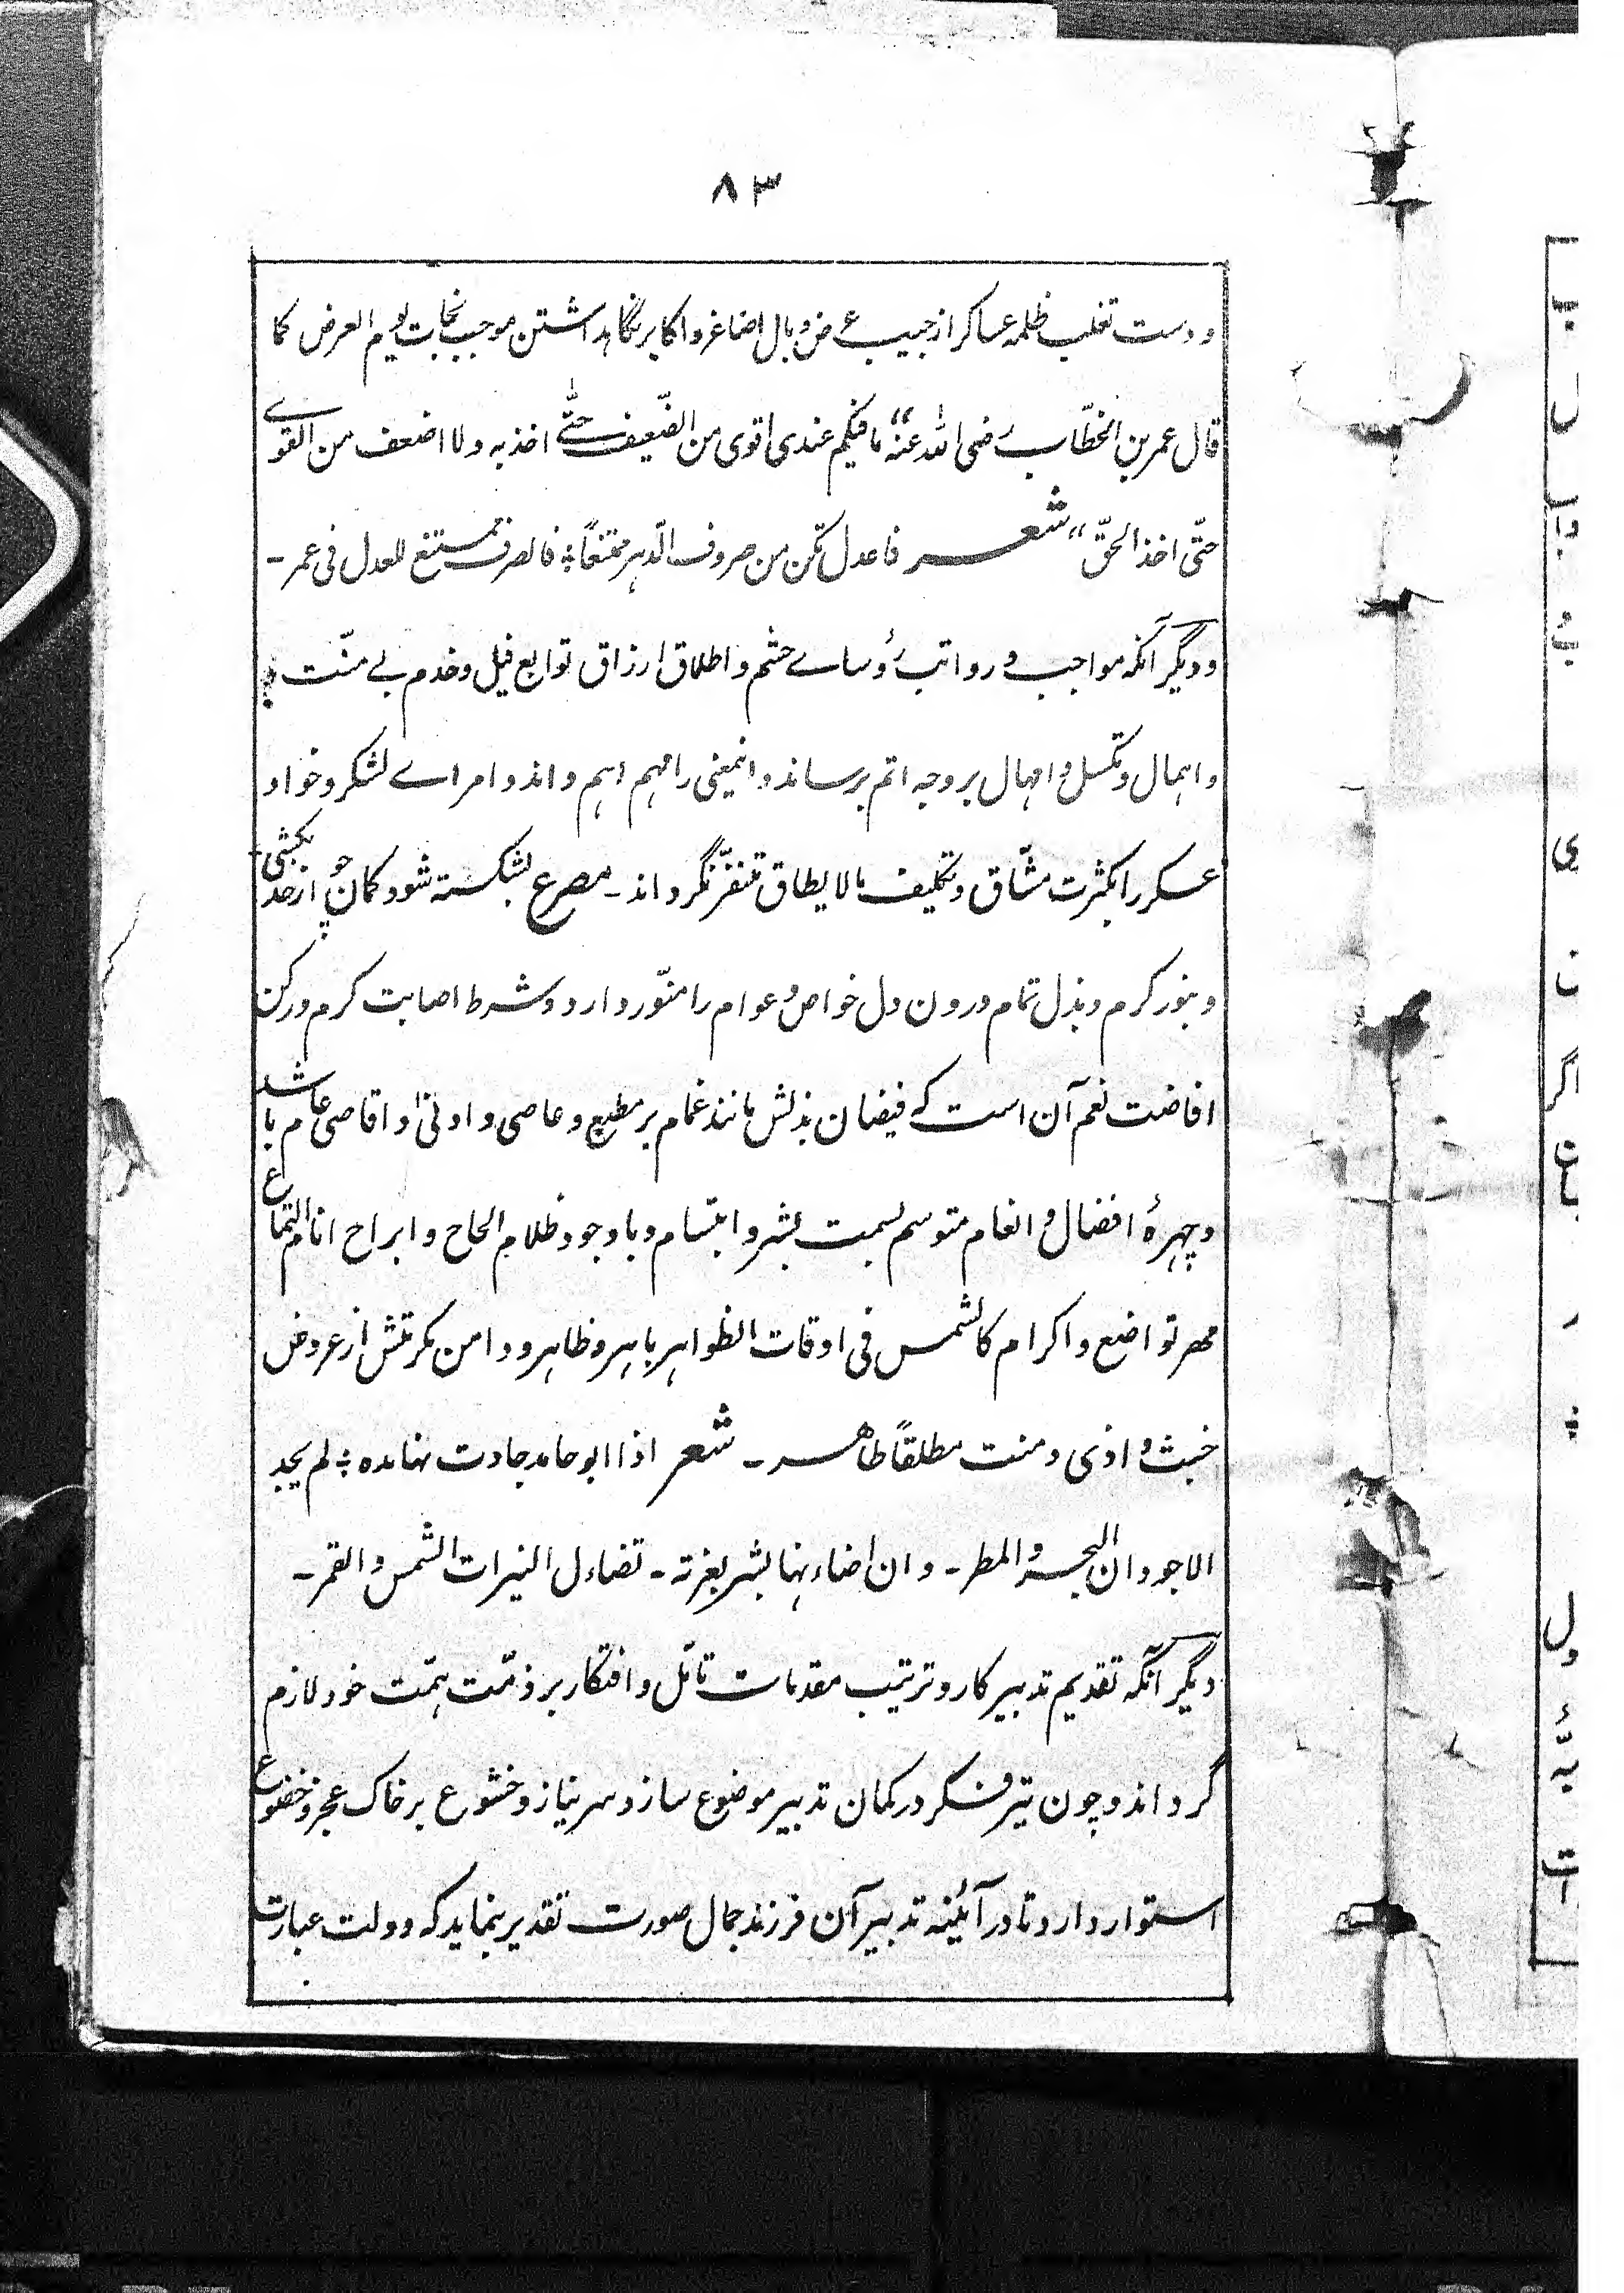 ۸۳
و دست تغلب ظلمه عساکر از جیب عرض و بال اصاغر و اکابر نگاهداشتن موجب نجات یوم العرض کما
قال عمر بن الخطّاب رضی الله عنه “ما فیکم عندی اقوی من الضّعیف حتّٰی اخذ به ولا اضعف من القوے
حتّی اخذ الحقّ” شعر فاعدل تکن من صروف الدّهر ممتنعاً ؛ فالصرف ممتنع للعدل فی عمر ـ
و دیگر آنکه مواجب و رواتب رؤساے حشم و اطلاق ارزاق توابع فیل و خدم بے منّت
و اهمال و تکسل و امهال بر وجه اتم برساند و اینمعنی را مهم اهم داند و امراے لشکر و خواد
عسکر را بکثرت مشّاق و تکلیف مالا یطاق متنفّر نگرداند ـ مصرع بشکسته شود کمان چو از حد بکشی ـ
و بنور کرم و بذل تمام درون دل خواص و عوام را منّور دارد و شرط اصابت کرم و رکن
افاضت نعم آن است که فیضان بذلش مانند غمام بر مطیع و عاصی و ادنیٰ و اقاصی عام باشد
و چهرهٔ افضال و انعام متوسم بسمت بشر و ابتسام و با وجود ظلام الحاح و ابراح انام التماع
مهر تواضع و اکرام کالشمس فی اوقات الظواهر باهر و ظاهر و دامن مکرمتش از عروض
خبث و اذی و منت مطلقاً طاهر ـ شعر اذا ابو حامد جادت لهنا یده ؛ لم یجد
الاجودان البحر و المطر ـ و ان اضاء لهنا بشر بغرته ـ تضاءل النیرات الشمس و القمر ـ
دیگر آنکه تقدیم تدبیر کار و ترتیب مقدمات تأمّل و افتکار بر ذمّت همّت خود لازم
گرداند و چون تیر فکر در کمان تدبیر موضوع سازد سر نیاز و خشوع بر خاک عجز و خضوع
استوار دارد تا در آئینه تدبیر آن فرزند جمال صورت تقدیر بنماید که دولت عبارت